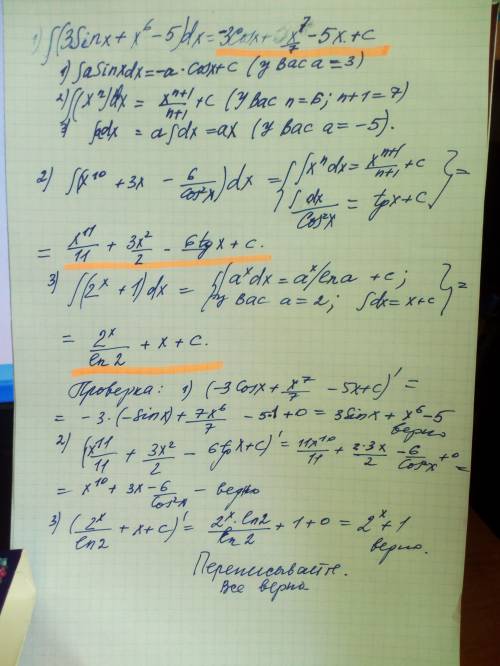 1) ∫(3Sinx + x⁶ - 5)dx = -3cosx + x⁷/7 - 5x + c
1) ∫aSinxdx = -a·cosx + c (у Вас a = 3)
2) ∫(xⁿ)dx = xⁿ⁺¹/n+1 + c (у Вас n = 6; n+1 = 7)
3) ∫adx = a∫dx = ax (у Вас a = -5).
2) ∫(x¹⁰ + 3x - 6/cos²x)dx = {∫xⁿdx = xⁿ⁺¹/n+1 + c
∫dx/Cos²x = tgx + c} =
= x¹¹/11 + 3x²/2 - 6tgx + c.
3) ∫(2ˣ + 1)dx = {∫aˣdx = aˣ/ln a + c;
у Вас a = 2; ∫dx = x + c} =
= 2ˣ/ln2 + x + c.
Проверка: 1) (-3Cosx + x⁷/7 - 5x + c)' =
= -3·(-Sinx) + 7x⁶/7 - 5·1 + 0 = 3Sinx + x⁶ - 5
верно
2) (x¹¹/11 + 3x²/2 - 6tgx + c)' = 11x¹⁰/11 + 2·3x/2 - 6/Cos²x + 0 =
= x¹⁰ + 3x - 6/Cos²x - верно
3) (2ˣ/ln2 + x + c)' = 2ˣ·ln2/ln2 + 1 + 0 = 2ˣ + 1
верно.
Переписывайте.
Все верно